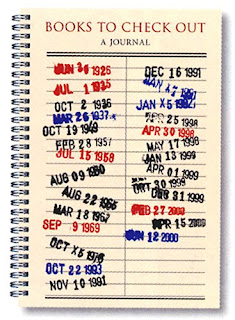 BOOKS TO CHECK OUT
A JOURNAL
JUN 26 1926
JUL 1 1935
OCT 2 1936
MAR 26 1937
OCT 19 1949
FEB 28 1957
JUL 15 1958
AUG 09 1960
AUG 22 1965
MAR 18 1967
SEP 9 1969
OCT 1976
OCT 22 1993
NOV 10 1991
DEC 16 1991
JAN 1997
JAN 1998
APR 25 1998
APR 30 1998
MAY 17 1998
JAN 13 1999
APR 01 1999
OCT 30 1999
DEC 31 1999
FEB 27 2000
APR 15 2000
JUN 12 2000